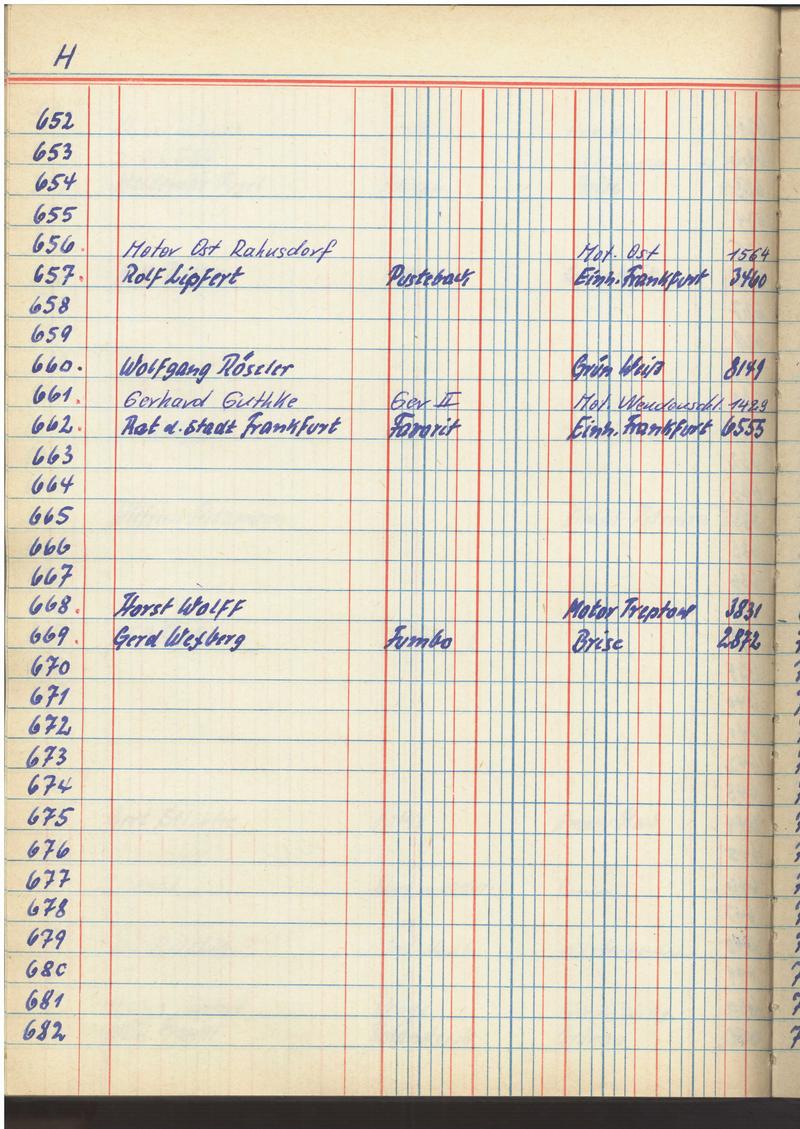 H
652
653
654
655
656. Motor Ost Rahnsdorf Mot. Ost 1564
657. Rolf Lipfert Pusteback Einh. Frankfurt 3460
658
659
660. Wolfgang Röseler Grün Weiß 8149
661. Gerhard Guthke Ger II Mot. Wendenschl. 1429
662. Rat d. Stadt Frankfurt Favorit Einh. Frankfurt 6555
663
664
665
666
667
668. Horst Wolff Motor Treptow 3831
669. Gerd Weßberg Jumbo Brise 2872
670
671
672
673
674
675
676
677
678
679
680
681
682